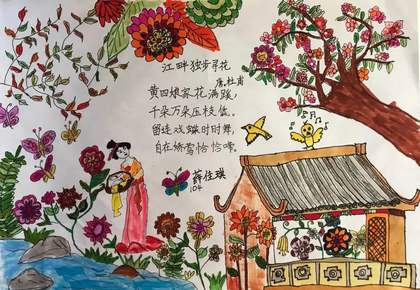 江畔独步寻花
唐.杜甫
黄四娘家花满蹊，
千朵万朵压枝低。
留连戏蝶时时舞，
自在娇莺恰恰啼。
薛佳琪
104